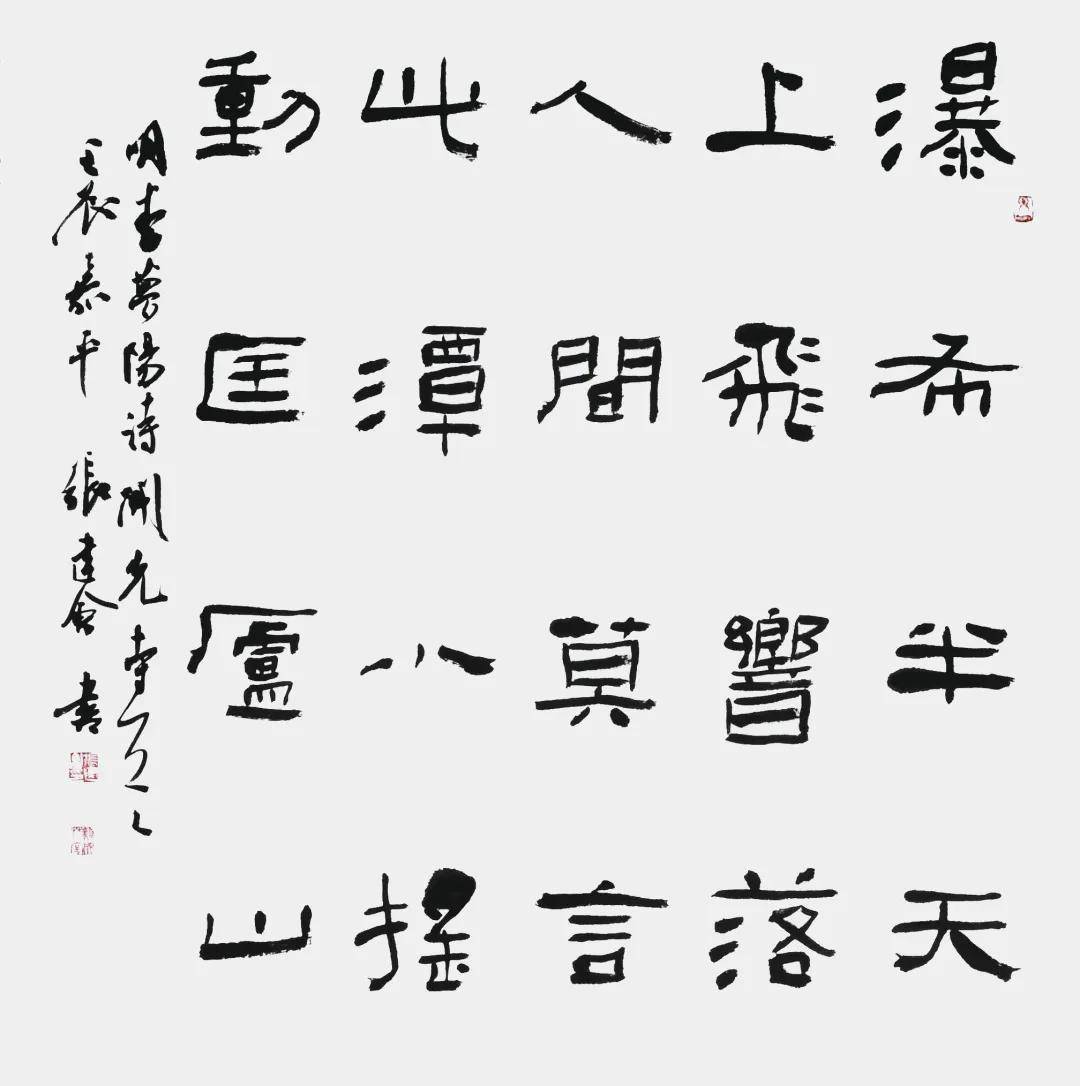 瀑布半天
上飛響落
人間莫言
此潭小搖
動匡廬山
明李夢陽詩開先寺
壬辰嘉平 張建會書